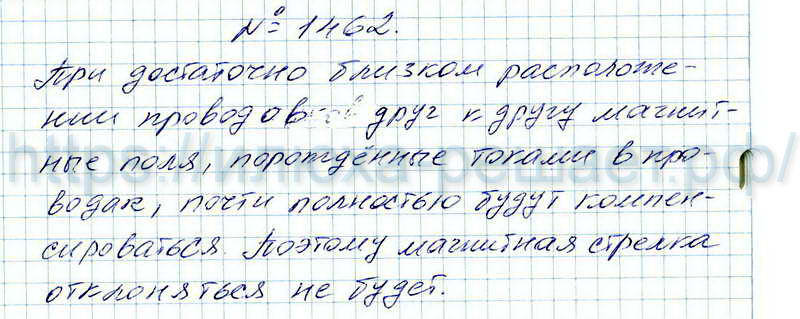 № 1462.
При достаточно близком расположе-
нии проводов друг к другу магнит-
ные поля, порождённые токами в про-
водах, почти полностью будут компен-
сироваться. Поэтому магнитная стрелка
отклоняться не будет.